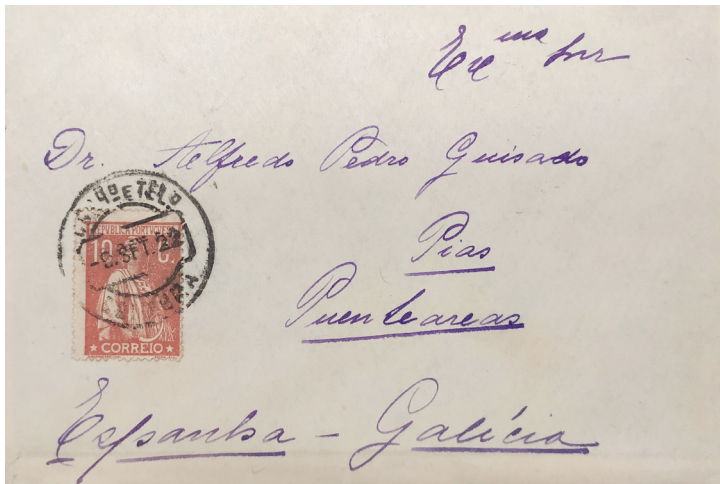 Exᵐᵒ Snr
Dr. Alfredo Pedro Guisado
Pias
Puenteareas
Espanha - Galícia
REPUBLICA PORTUGUESA
C.
CORREIO
SET. 22